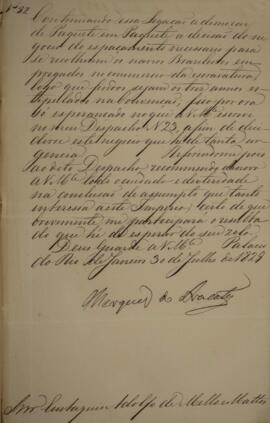 Nº 32
Continuando essa Legação a demorar
de Paquete em Paquete a decisão do ne
gocio do espaçamento necessario para
se recolherem os navios Brasileiros em
pregados no commercio da escravatura,
logo que findos sejam os tres annos es
tipulados na convenção, fico por ora
esperançado no que a V. Mce escrevo
no meu Despacho Nº 23, a fim de
este negocio que he de tanta ur
gencia. Referindome pois
ao dito Despacho, recommendo de novo
a V. Mce todo cuidado e dexteridade
na conclusão do assumpto que tanto
interessa a este Imperio; certo de que
brevemente me participará o resulta
do que he de esperar do seu zelo.
Deos Guarde a V. Mce Palacio
do Rio de Janeiro 30 de Julho de 1828
Marquez de Aracaty
Snr Eustaquio Adolfo de Mello Mattos